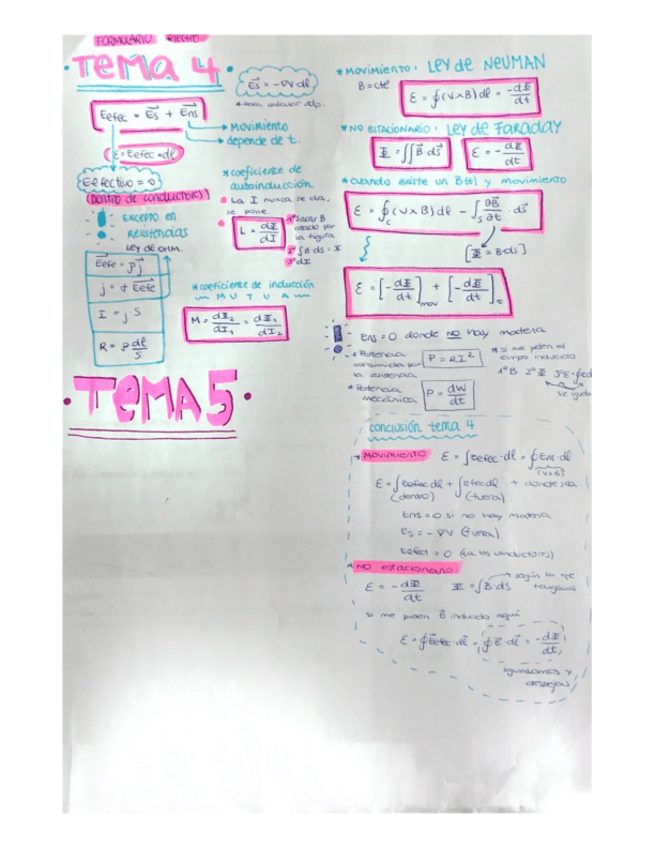 FORMULARIO ELECTRO
• TEMA 4 •
Es = -∇V dl
Eefec = Es + Ens
→ MOVIMIENTO
→ depende de t.
ε = Eefec · dl
Eefectivo = 0
(Dentro de conductores)
EXCEPTO EN
RESISTENCIAS
LEY DE OHM.
Eefe = ρj
j = σ Eefe
I = j S
R = ρ dl/S
* coeficiente de
autoinducción
• La I nunca se da,
se pone.
• L = dΦ/dI
1º sacar B
creado por
la figura
2º ∫B·ds = Φ
3º dI
* coeficiente de inducción
MUTUA
M = dΦ2/dI1 = dΦ1/dI2
• TEMA 5 •
* MOVIMIENTO: LEY de NEUMAN
B = cte
ε = ∮(v×B)dl = -dΦ/dt
* NO ESTACIONARIO: LEY de FARADAY
Φ = ∬B·ds
ε = -dΦ/dt
* cuando existe un B(t) y movimiento
ε = ∮c(v×B)dl - ∫s ∂B/∂t · ds
[Φ = B·ds]
ε = [-dΦ/dt]mov + [-dΦ/dt]t
Ens = 0 donde NO hay materia
* Potencia
consumida por
la resistencia
P = RI²
* si me piden el
campo inducido
1º B 2º Φ 3º
se iguala
* Potencia
mecánica
P = dW/dt
conclusión tema 4
* MOVIMIENTO ε = ∫Eefec·dl = ∮Ens dl
(v×B)
ε = ∫Eefec dl + ∫Efec dl
(dentro) (fuera)
Ens = 0 si no hay materia
Es = -∇V (fuera)
Eefect = 0 (en los conductores)
* NO estacionario:
ε = -dΦ/dt Φ = ∫B·ds → según lo que
tengamos
si me piden E inducido aquí
ε = ∮Eefec·dl = ∮E·dl = -dΦ/dt
igualamos y
despejas